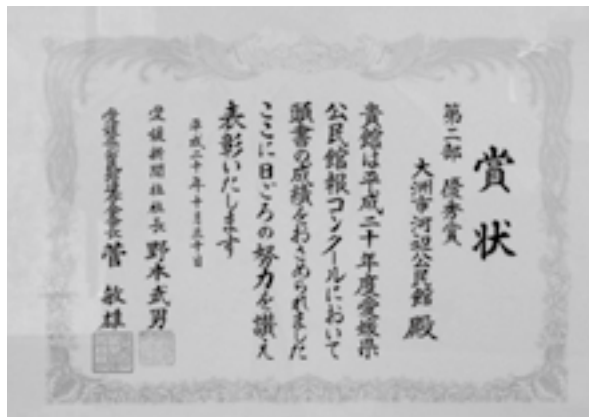 賞状
第二部 優秀賞
大洲市河辺公民館 殿
貴館は平成二十年度愛媛県
公民館報コンクールにおいて
頭書の成績をおさめられました
ここに日ごろの努力を讃え
表彰いたします
平成二十年十月三十日
愛媛新聞社社長 野本武男
菅 敏雄